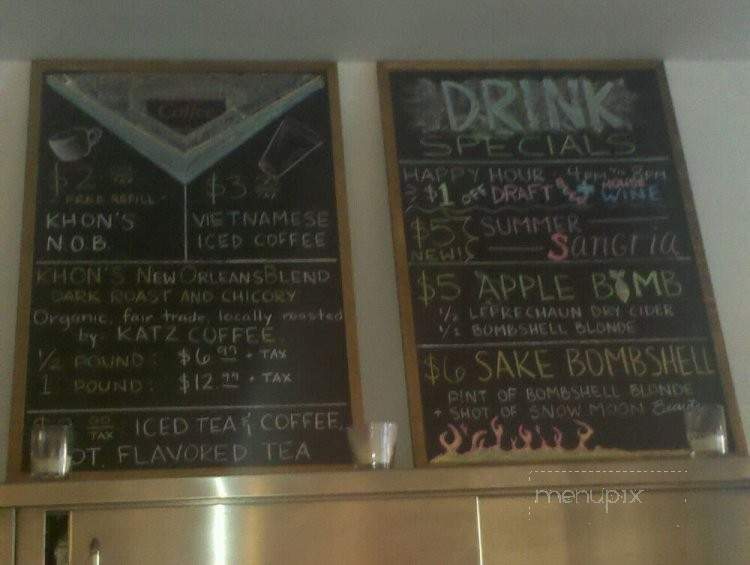 Coffee
$2
FREE REFILL
KHON'S
N.O.B.
$3
VIETNAMESE
ICED COFFEE
KHON'S NEW ORLEANS BLEND
DARK ROAST AND CHICORY
Organic, fair trade, locally roasted
by KATZ COFFEE
1/2 POUND: $6.99 + TAX
1 POUND: $12.99 + TAX
TAX ICED TEA & COFFEE,
FLAVORED TEA
DRINK
SPECIALS
HAPPY HOUR 4PM TO 8PM
$1 OFF DRAFT + HOUSE WINE
$5 SUMMER
NEW! Sangria
$5 APPLE BOMB
1/2 LEPRECHAUN DRY CIDER
1/2 BOMBSHELL BLONDE
$6 SAKE BOMBSHELL
PINT OF BOMBSHELL BLONDE
+ SHOT OF SNOW MOON
menupix